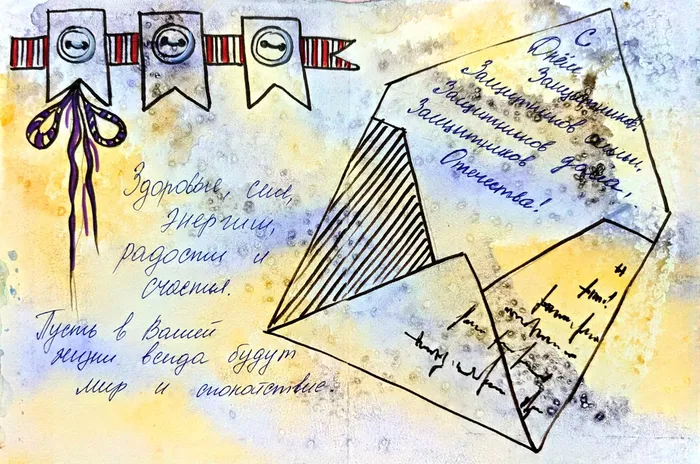 С
Днём
Защитников,
Защитников семьи,
Защитников дома,
Защитников
Отечества!
Здоровье, сил,
Энергии,
радости и
счастья.
Пусть в Вашей
жизни всегда будут
мир и спокойствие.